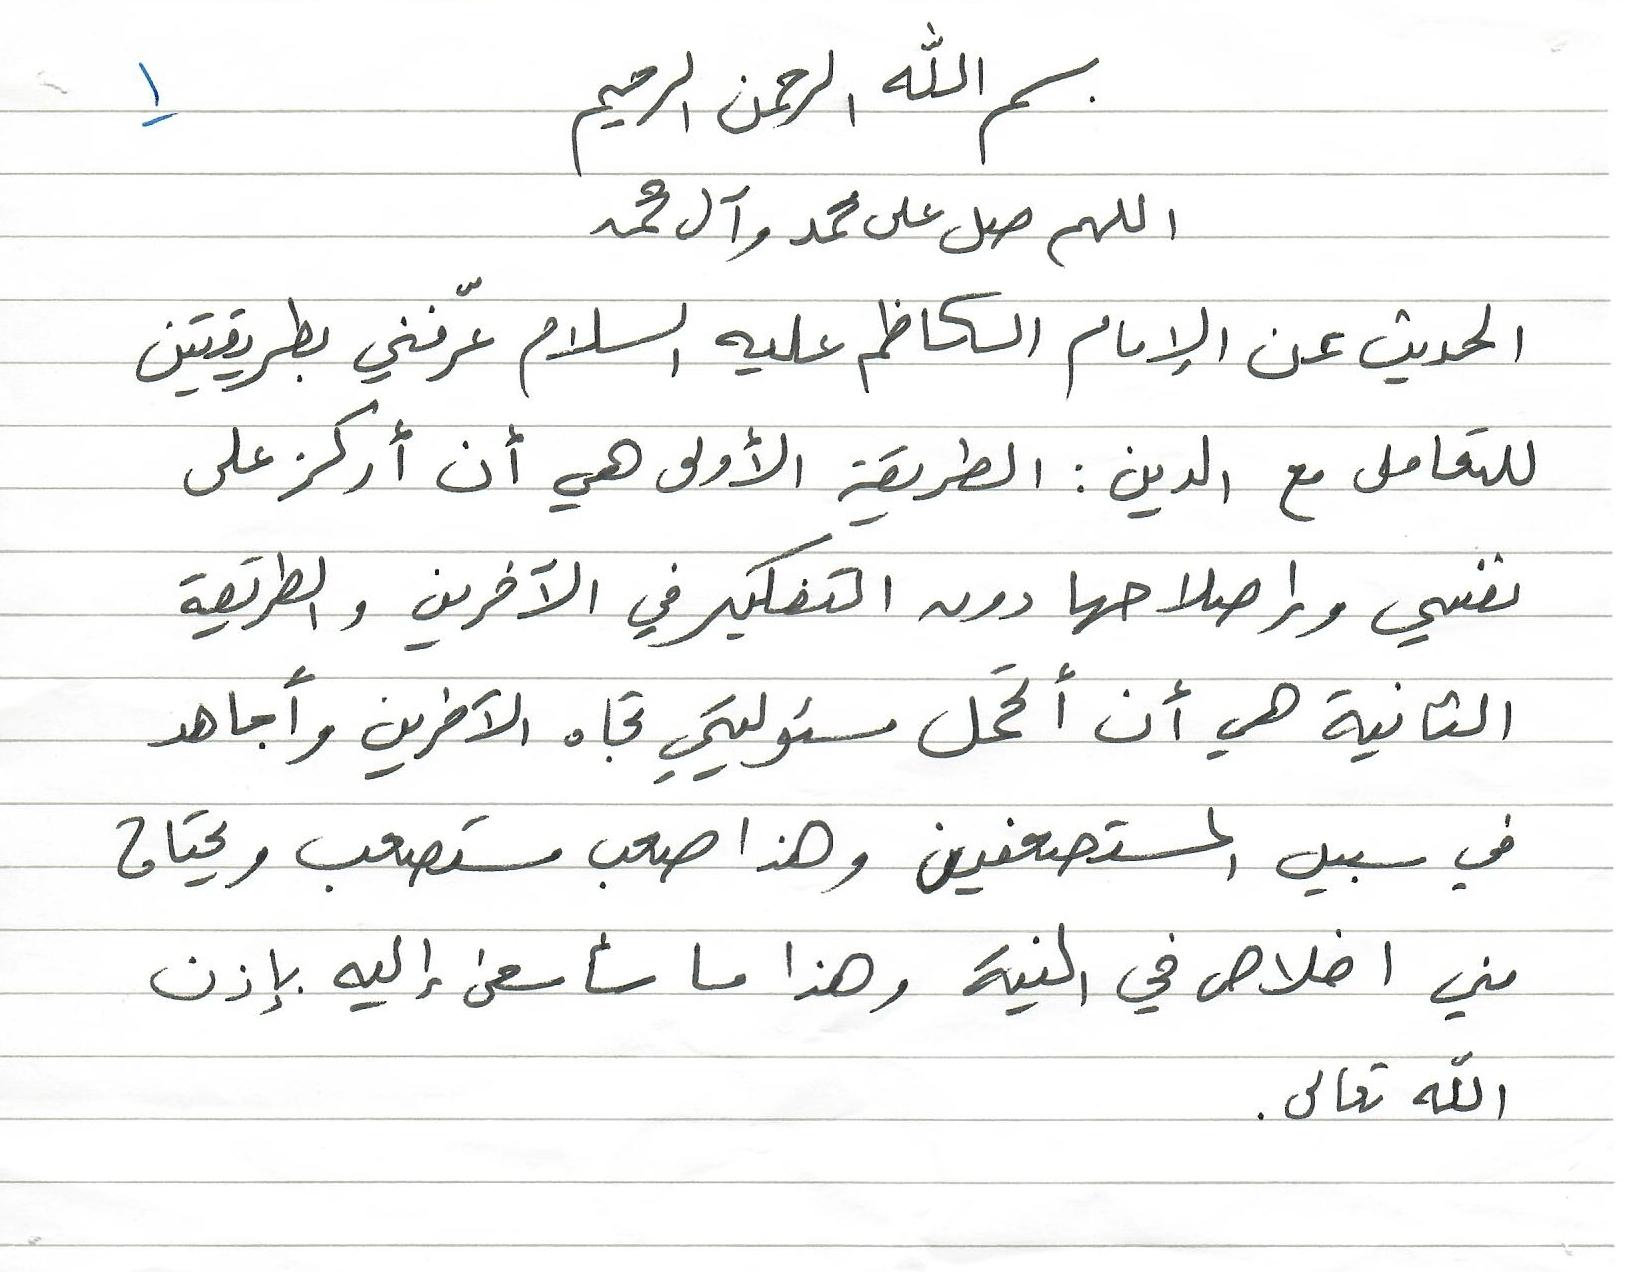 ١
بسم الله الرحمن الرحيم
اللهم صل على محمد وآل محمد
الحديث عن الإمام الكاظم عليه السلام عرّفني بطريقتين
للتعامل مع الدين : الطريقة الأولى هي أن أركز على
نفسي وإصلاحها دون التفكير في الآخرين والطريقة
الثانية هي أن أتحمل مسئوليتي تجاه الآخرين وأجاهد
في سبيل المستضعفين وهذا صعب مستصعب ويحتاج
مني اخلاص في النية وهذا ما سأسعى إليه بإذن
الله تعالى .